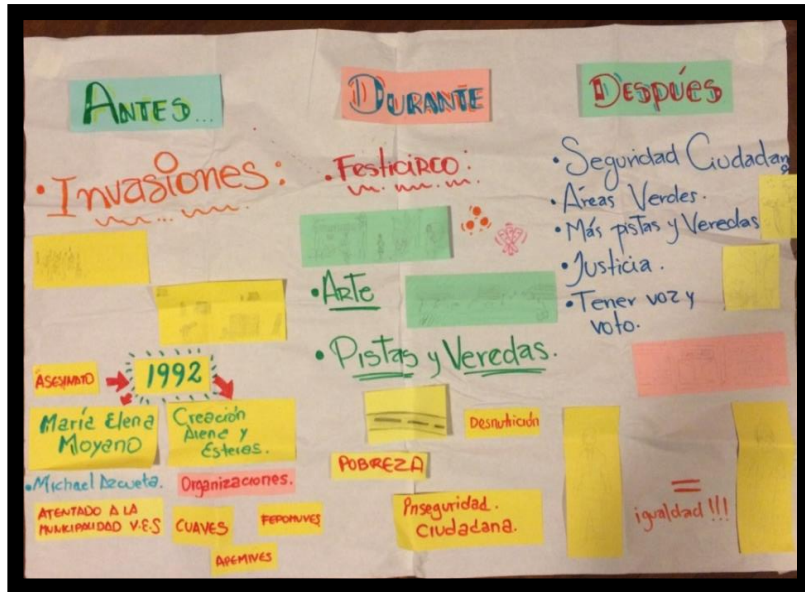 ANTES...
• Invasiones:
ASESINATO
1992
María Elena
Moyano
Creación
Arena y
Esteras.
• Michael Azcueta.
Organizaciones.
ATENTADO A LA
MUNICIPALIDAD V.E.S
CUAVES
FEPOMUVES
APEMIVES
DURANTE
• FESTICIRCO:
• ARTE
• Pistas y Veredas.
Desnutrición
POBREZA
Inseguridad.
Ciudadana.
DESPÚES
• Seguridad Ciudadana
• Áreas Verdes.
• Más pistas y Veredas
• Justicia.
• Tener voz y
voto.
=
igualdad!!!